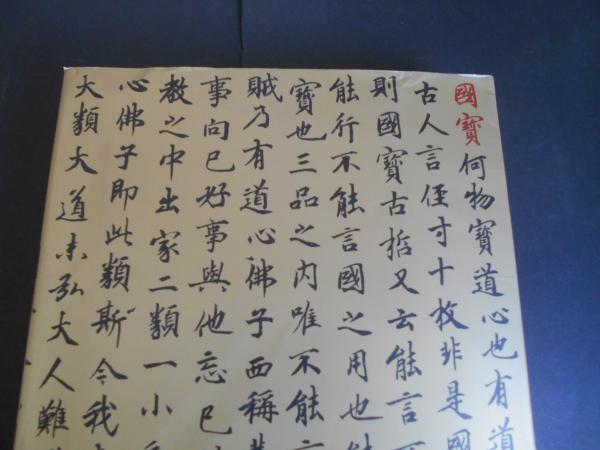 國寶何物寶道心也有道
古人言径寸十枚非是國
則國寶古哲又云能言
能行不能言國之用也能
寶也三品之内唯不能言
賊乃有道心佛子西稱菩
事向己好事與他忘己
教之中出家二類一小
心佛子即此類斯今我
大類大道未弘大人難